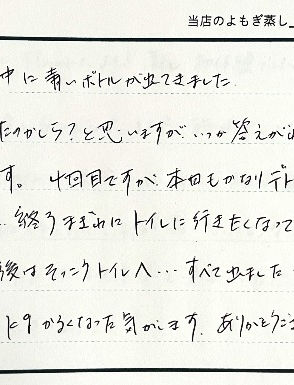 当店のよもぎ蒸し
中に青いボトルが出てきました
たのかしら?と思いますが、いつか答えが
す。4回目ですが、本日もかなりデト
終るまぎわにトイレに行きたくなって
後はそっこうトイレへ…すべて出ました
かるくなった気がします。ありがとうご